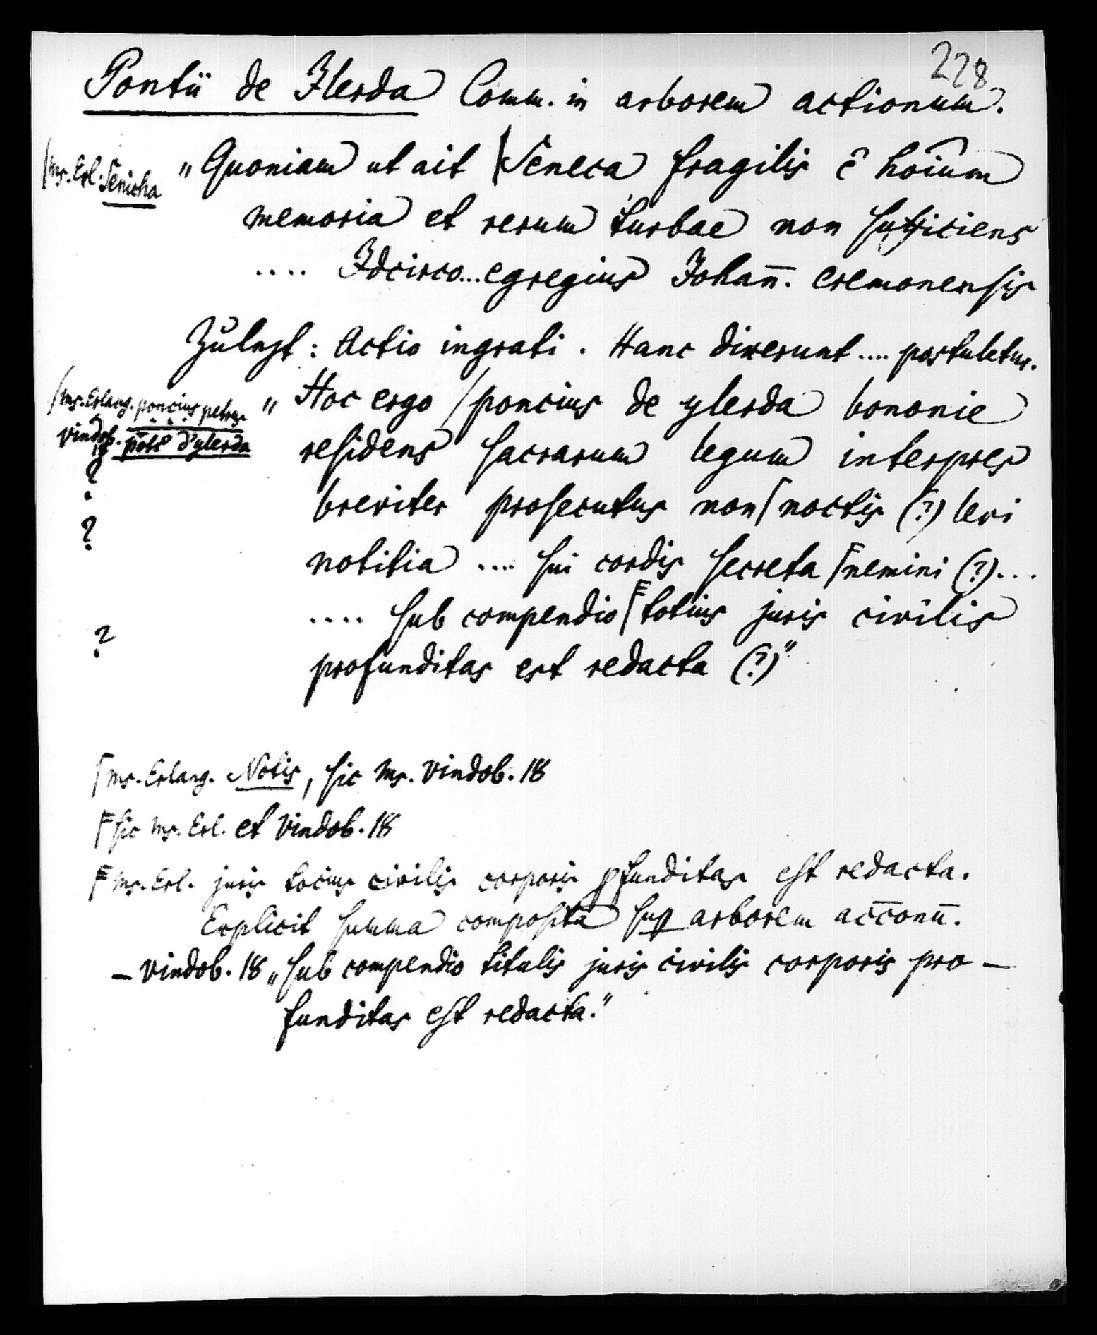 228.
Pontii de Ilerda Comm. in arborem actionum.
/ms. Erl. Senicha
"Quoniam ut ait /Seneca fragilis ē hoium
memoria et rerum turbae non sufficiens
.... Idcirco... egregius Johan̄. cremonensis
Zuletzt: Actio ingrati. Hanc dixerunt .... postuletur.
/ms. Erlang. poncius petrus
vindob. 18 d'ylerda
"Hoc ergo /poncius de ylerda bononie
residens sacrarum legum interpres
?
breviter prosecutus non ⌈noctis (?) levi
?
notitia .... sui cordis secreta /nemini (?)...
.... sub compendio /totius juris civilis
?
profunditas est redacta (?)"
⌈ms. Erlang. Notis, sic ms. vindob. 18
F sic ms. Erl. et Vindob. 18
F ms. Erl. juris tocius civilis corporis pfunditas est redacta.
Explicit summa composita sup arborem acc̄onū.
– vindob. 18 „sub compendio titulis juris civilis corporis pro –
funditas est redacta."